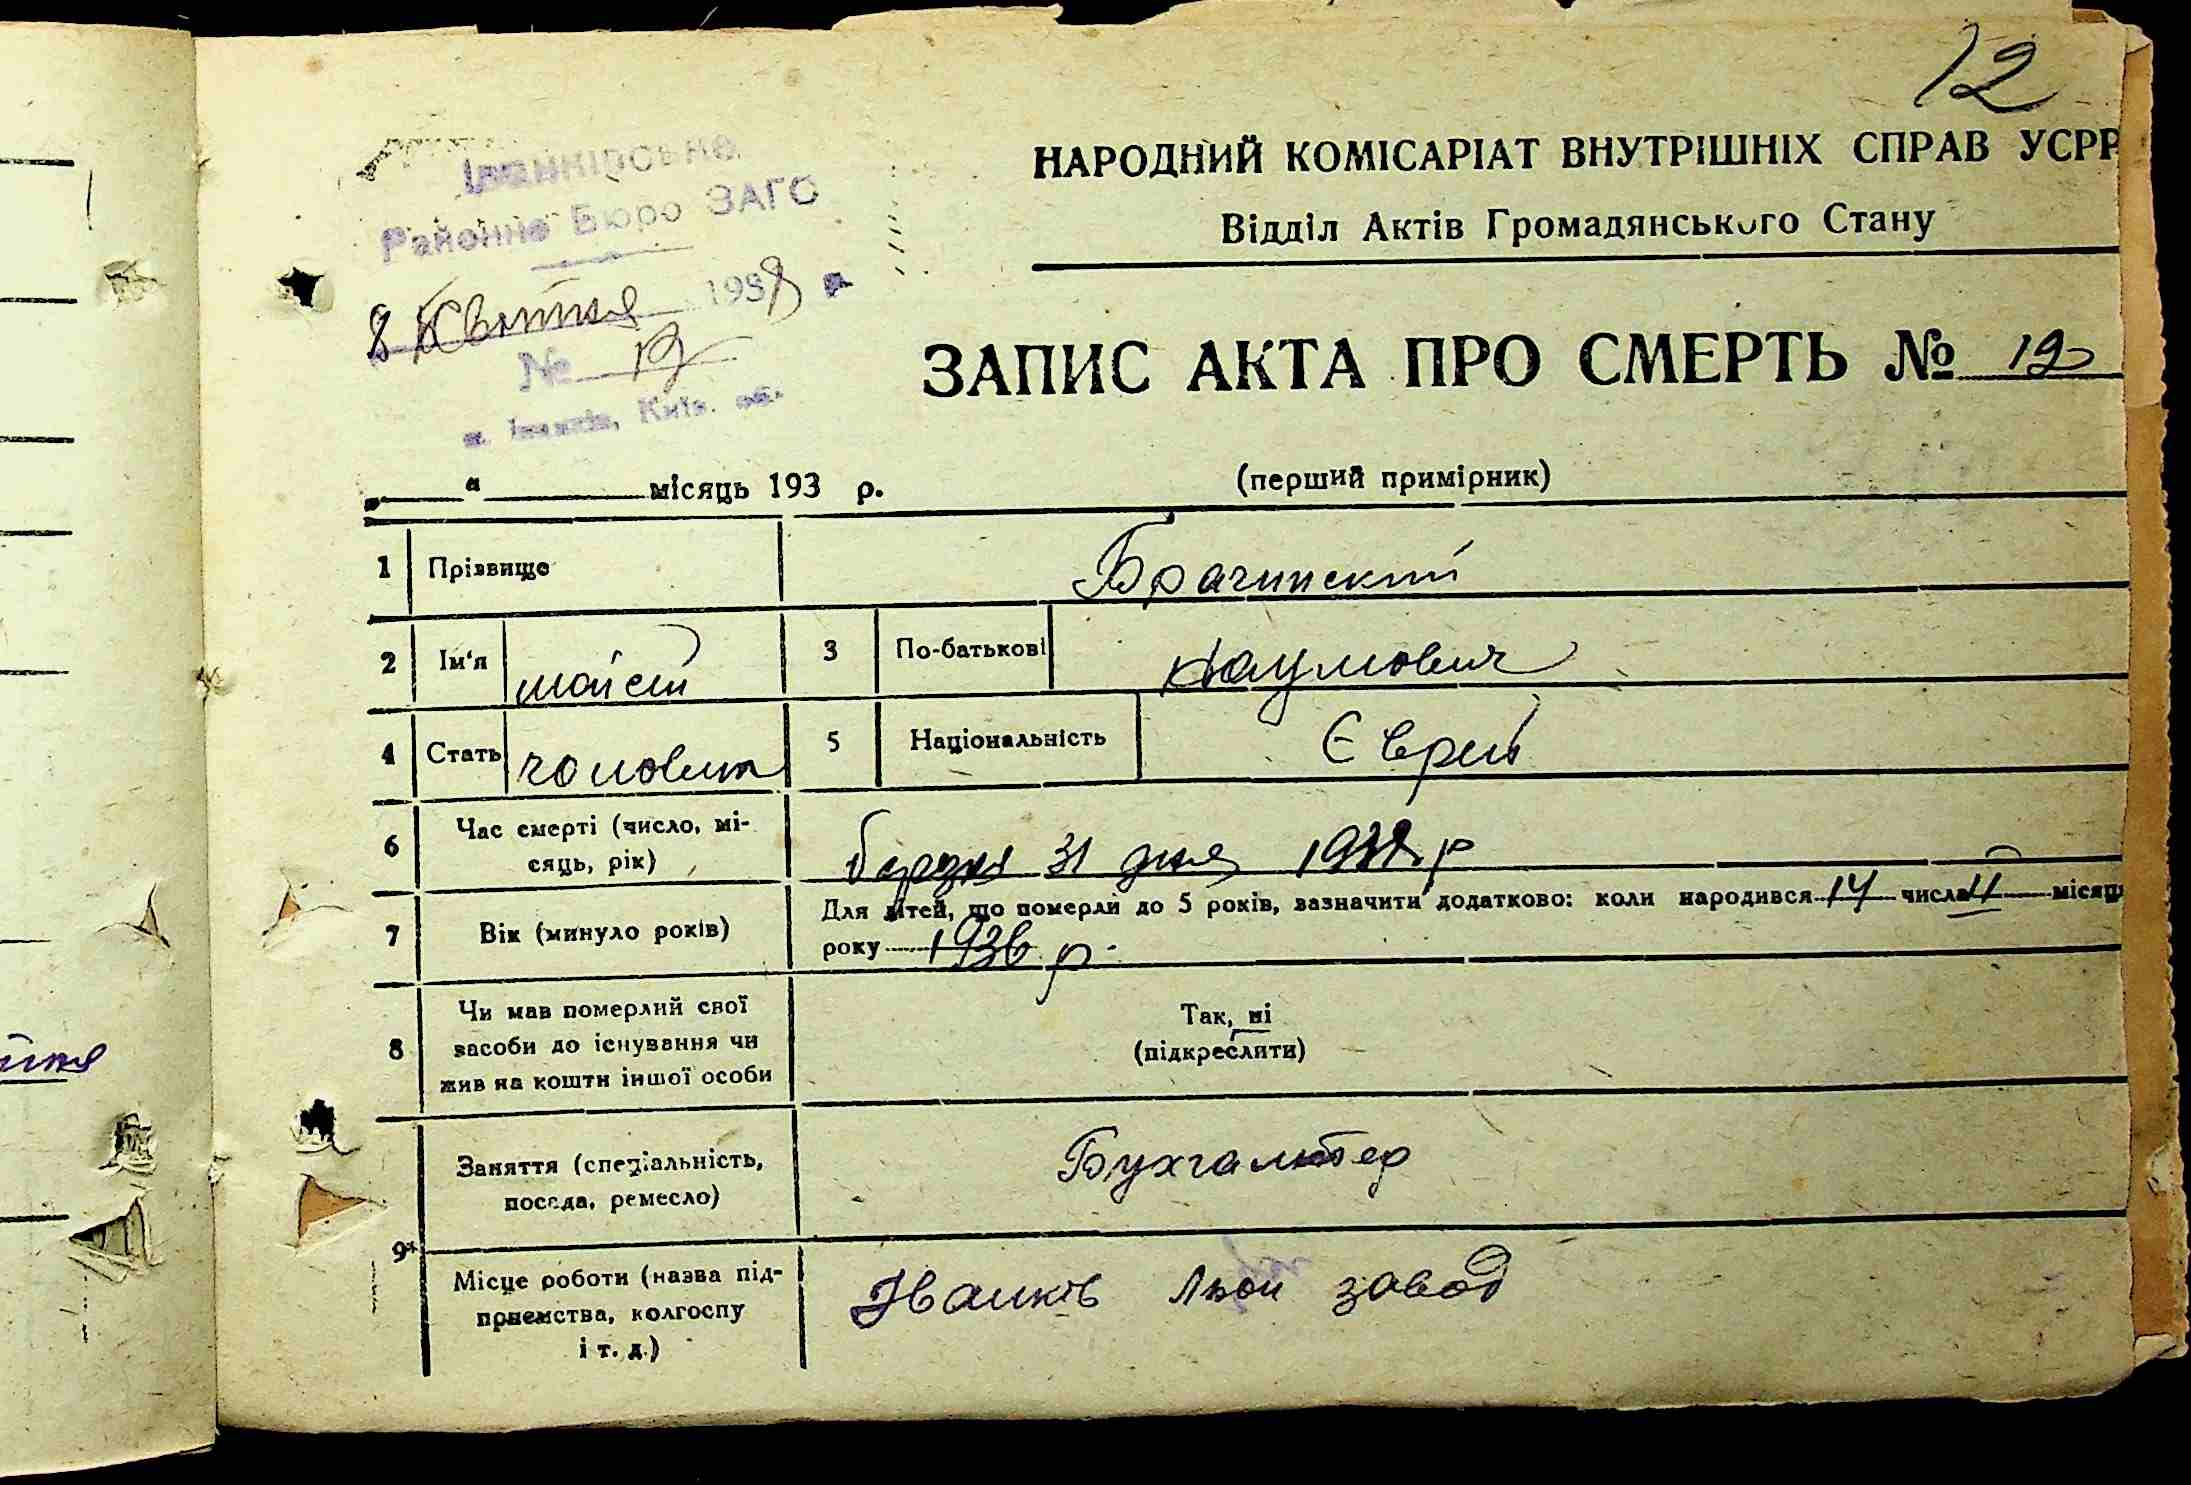 12
НАРОДНИЙ КОМІСАРІАТ ВНУТРІШНІХ СПРАВ УСРР
Відділ Актів Громадянського Стану
Іванківське
Районне Бюро ЗАГС
8 Квітня 1938 р
№ 12
м. Іванків, Київ. об.
ЗАПИС АКТА ПРО СМЕРТЬ № 12
„ “ місяць 193 р.
(перший примірник)
1 Прізвище Брагинский
2 Ім'я Мойсей 3 По-батькові Наумович
4 Стать чоловіч 5 Національність Єврей
6 Час смерті (число, мі-
сяць, рік)
31 дня 1938 р
7 Вік (минуло років)
Для дітей, що померли до 5 років, зазначити додатково: коли народився 14 числа II місяць
року 1936 р.
8 Чи мав померлий свої
засоби до існування чи
жив на кошти іншої особи
Так, ні
(підкреслити)
Заняття (спеціальність,
посада, ремесло)
Бухгалтер
9*
Місце роботи (назва під-
приємства, колгоспу
і т. д.)
Іванків Льон завод